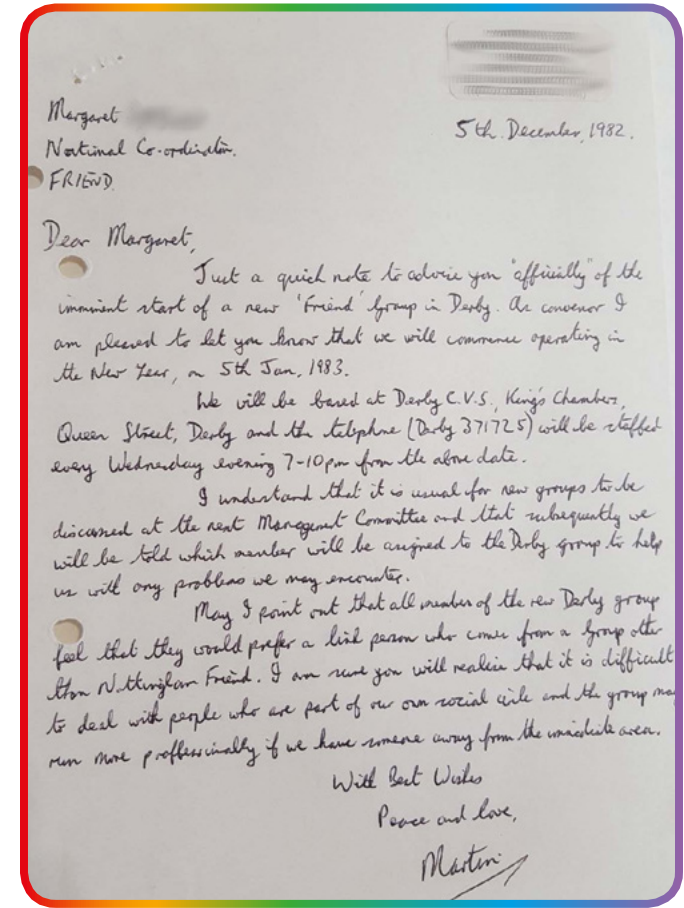 Margaret
5th. December, 1982.
National Co-ordinator.
FRIEND.
Dear Margaret,
Just a quick note to advise you "officially" of the
imminent start of a new 'Friend' Group in Derby. As convenor I
am pleased to let you know that we will commence operating in
the New Year, on 5th Jan, 1983.
We will be based at Derby C.V.S., King's Chambers,
Queen Street, Derby and the telephone (Derby 371725) will be staffed
every Wednesday evening 7-10pm from the above date.
I understand that it is usual for new groups to be
discussed at the next Management Committee and that subsequently we
will be told which member will be assigned to the Derby group to help
us with any problems we may encounter.
May I point out that all member of the new Derby group
feel that they would prefer a link person who comes from a Group other
than Nottingham Friend. I am sure you will realise that it is difficult
to deal with people who are part of our own social circle and the group may
run more proffessionally if we have someone away from the immediate area.
With Best Wishes
Peace and love,
Martin